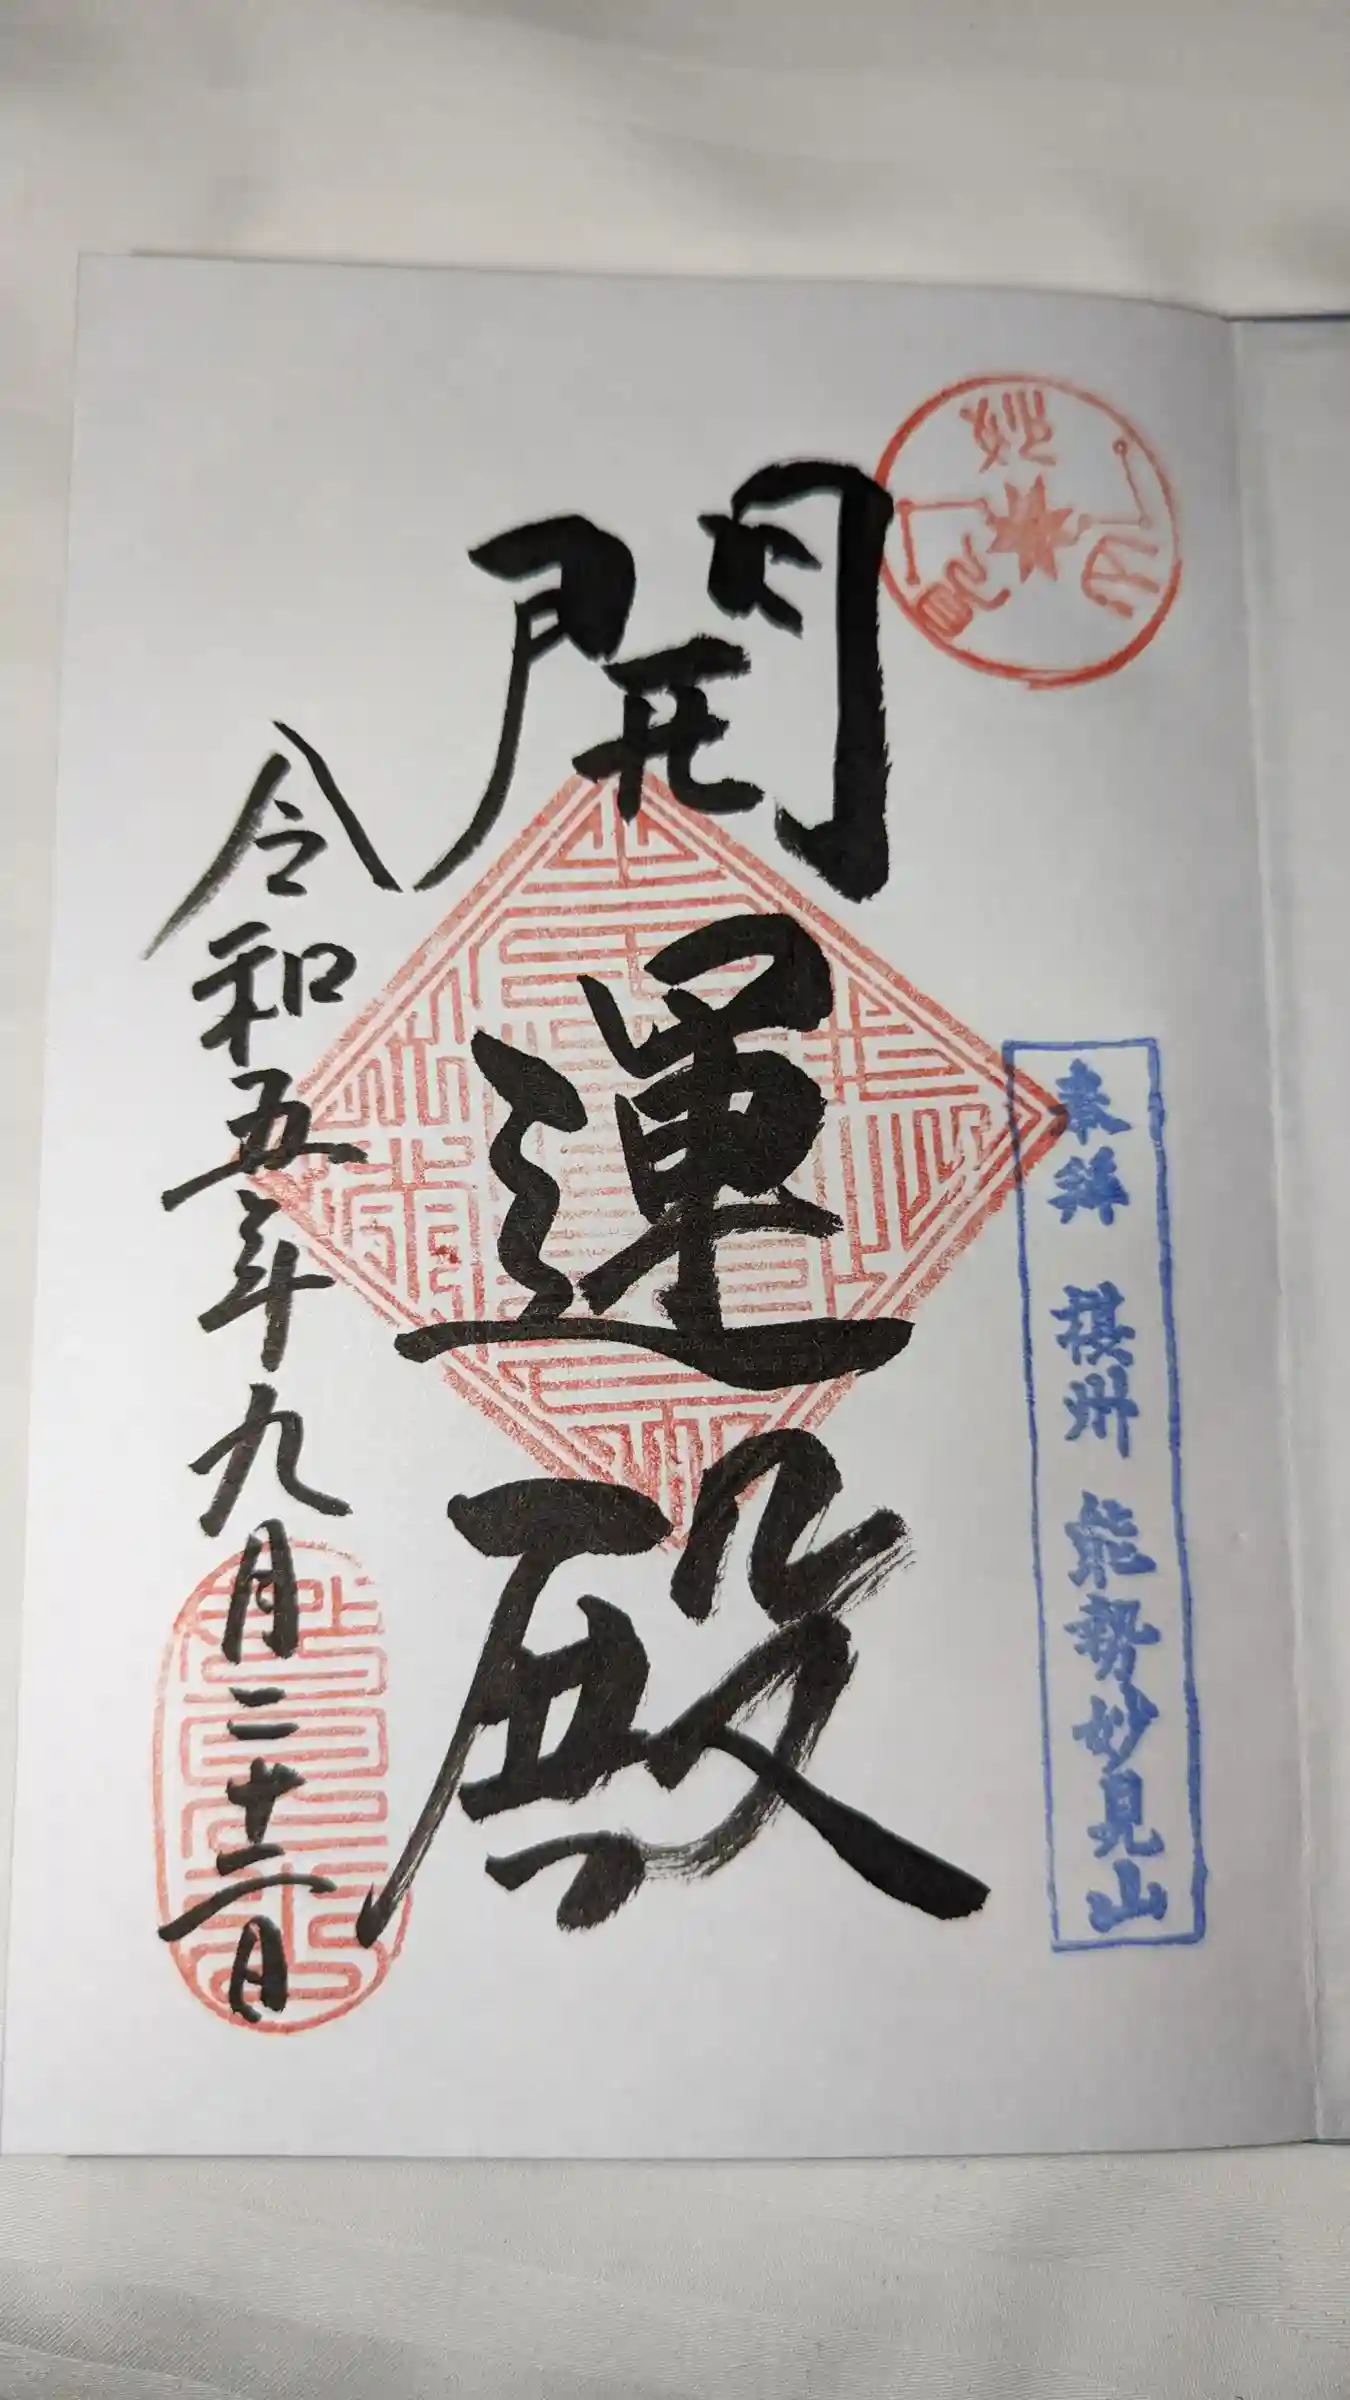 妙見山
奉拝 摂州 能勢妙見山
開運殿
令和五年九月二十二日